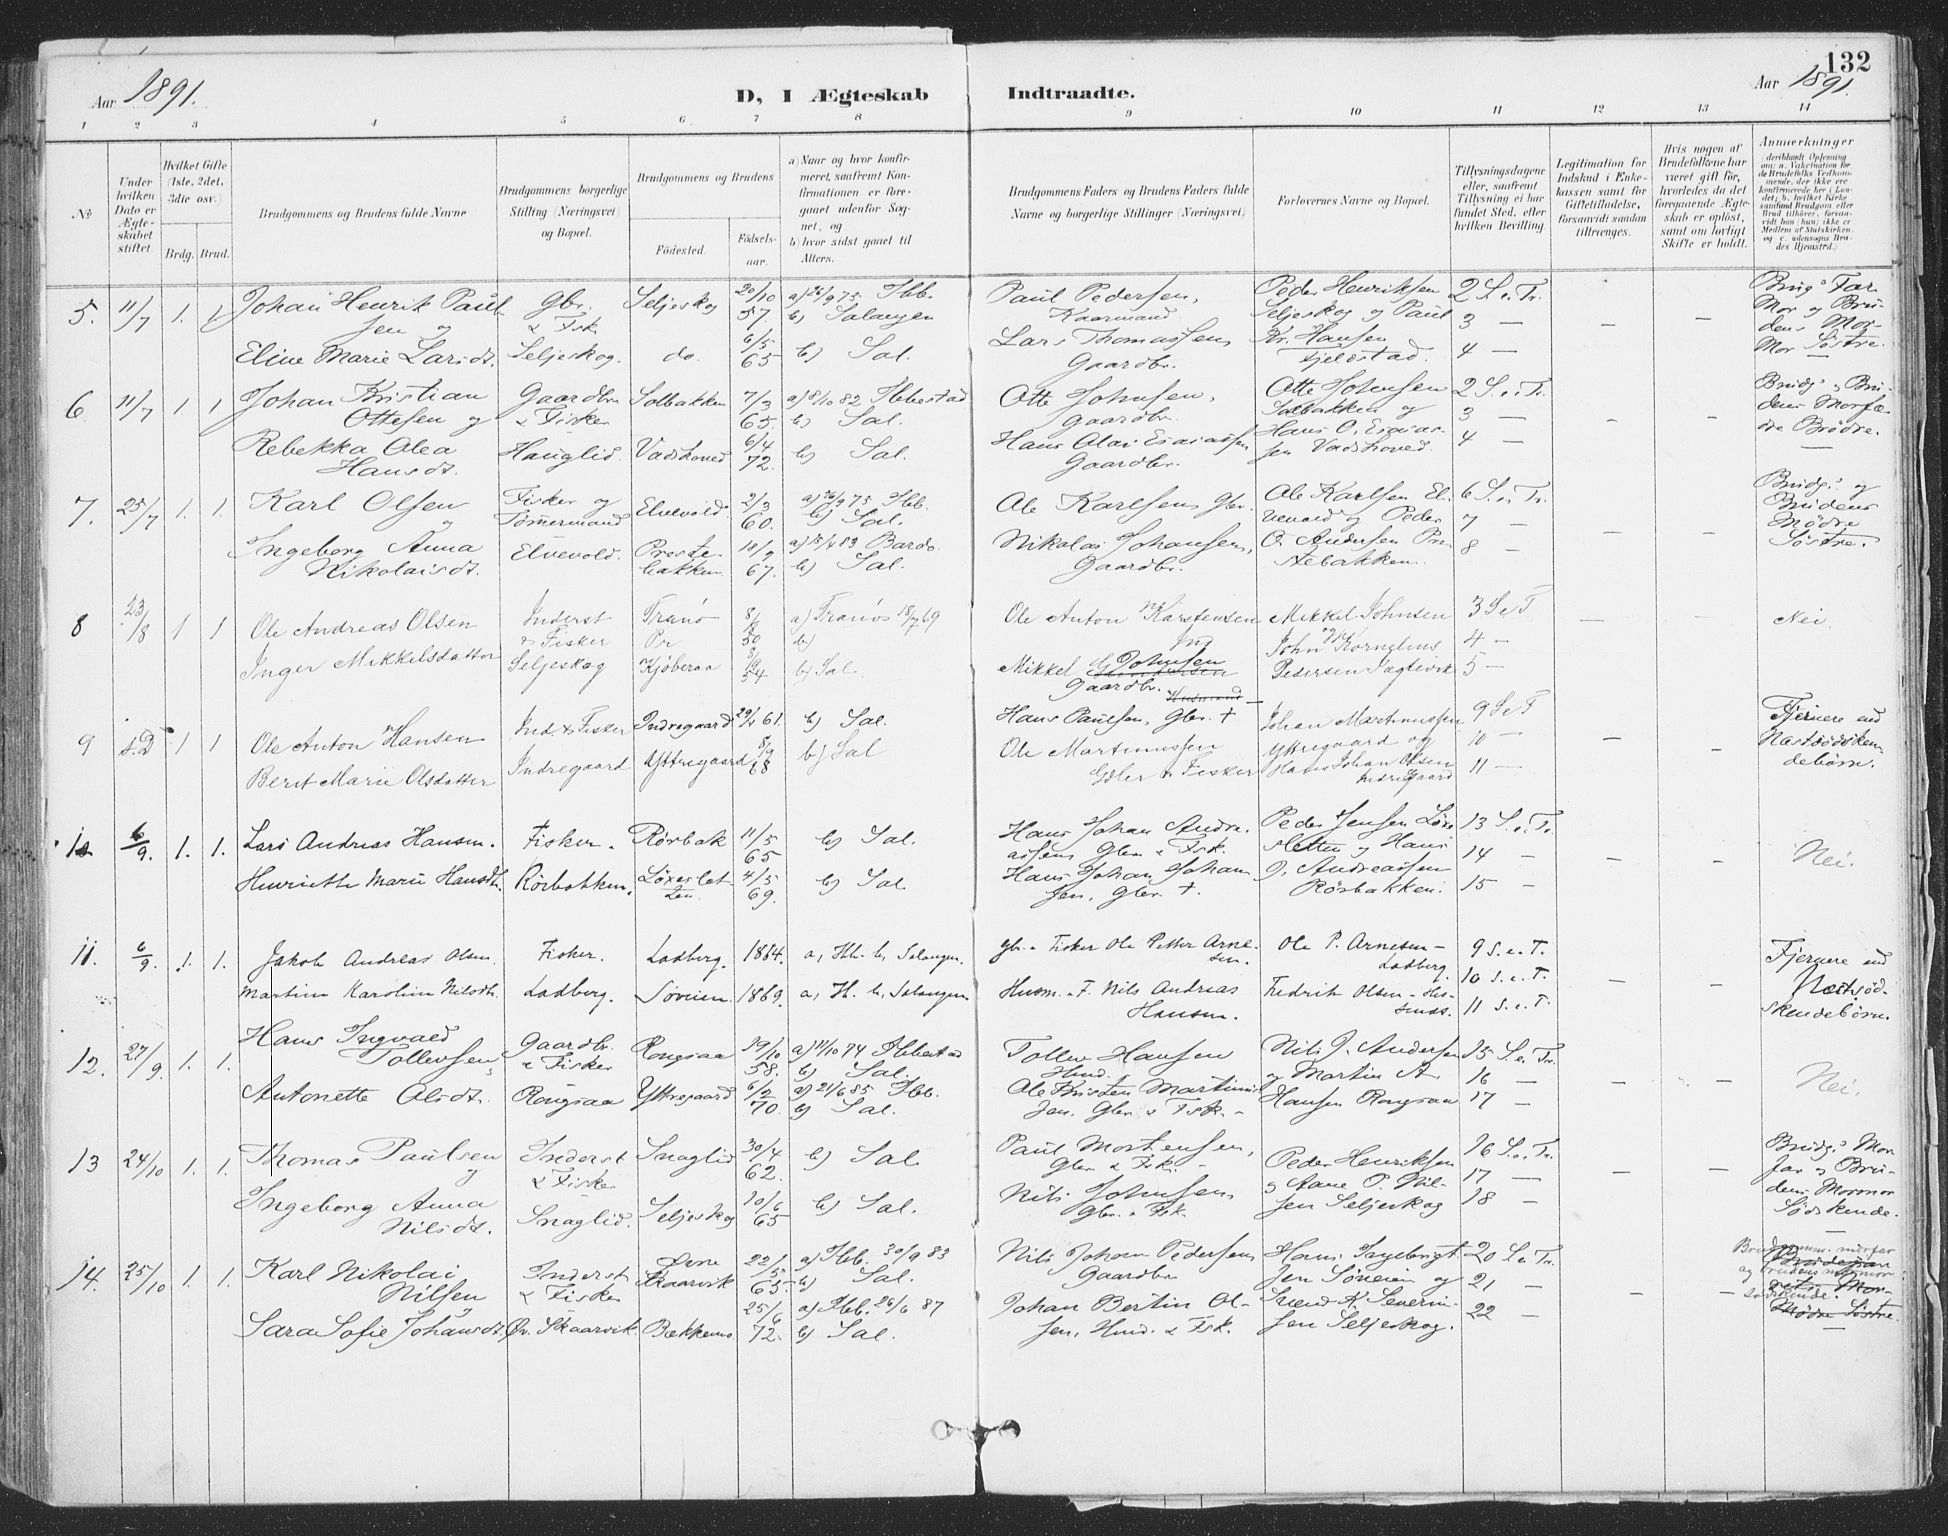 132
Aar 1891.
D, I Ægteskab Indtraadte.
Aar 1891.
1 2 3 4 5 6 7 8 9 10 11 12 13 14
No
Under hvilken Dato er Ægteskabet stiftet.
Hvilket Gifte (1ste, 2det, 3die osv.)
Brdg. Brud.
Brudgommens og Brudens fulde Navne
Brudgommens borgerlige Stilling (Næringsvei) og Bopæl.
Brudgommens og Brudens
Fødested.
Fødselsaar.
a) Naar og hvor konfirmeret, saafremt Konfirmationen er foregaaet udenfor Sognet, og
b) hvor sidst gaaet til Alters.
Brudgommens Faders og Brudens Faders fulde Navne og borgerlige Stillinger (Næringsvei)
Forlovernes Navne og Bopæl.
Tillysningsdagene eller, saafremt Tillysning ei har fundet Sted, efter hvilken Bevilling.
Legitimation for Indskud i Enkekassen samt for Giftetilladelse, forsaavidt saadan tiltrænges.
Hvis nogen af Brudefolkene har været gift før, hvorledes da det foregaaende Ægteskab er opløst, samt om lovligt Skifte er holdt.
Anmerkninger
5. 11/7 1. 1 Johan Henrik Paulsen og Gbr. & Fisk. Seljeskog 20/10 57. a) 26/9 75 Ibb. b) Salangen Paul Pedersen, Kaarmand Peder Henriksen Seljeskog og Paul 2 S. e. Tr. 3 — Brudgs Far Mor og Brudens Mor-
Eline Marie Larsdt. Seljeskog. do. 6/5 65 b) Sal. Lars Thomassen Gaardbr. Kr. Hansen Fjeldstad. 4 — Mor Søstre.
6. 11/7 1 1 Johan Kristian Ottesen og Gaardbr & Fisker Solbakken 7/3 65. a) 8/10 82 Ibbestad b) Sal. Otte Johnsen, Gaardbr. Otte Johnsen Solbakken og 2 S. e. Tr. 3 — Brudgs og Brudens Morfædre Brödre.
Rebekka Olea Hansdt. Hauglid. Vadshoved 6/4 72. b) Sal. Hans Olai Esaiassen Gaardbr. Hans O. Esaiassen Vadshoved. 4 —
7. 25/7 1. 1. Karl Olsen og Fisker og Tømmermand Elvevold 2/3 60. a) 26/9 75 Ibb. b) Sal. Ole Karlsen, Gbr. Ole Karlsen Elvevold og Peder 6 S. e. Tr. 7 — Brudgs og Brudens Mødre Søstre.
Ingeborg Anna Nikolaisdt. Elvevold. Prestebakken 18/9 67. a) 15/4 83 Bardo b) Sal. Nikolai Johansen, Gaardbr. O. Andersen Prestebakken. 8 —
8 23/8 1 1 Ole Andreas Olsen Inderst & Fisker Tranö Pr 50 a) Tranös 18/7 69 b) Ole Anton Karstensen Mikkel Johnsen og 3 S e T 4 — Nei.
Inger Mikkelsdatter Seljeskog Kjöberaa 54. b) Sal. Mikkel Johnsen Gaardbr. John Kornelius Pedersen Sagtevik 5 —
9 s.D 1 1 Ole Anton Hansen Ind. & Fisker Indregaard 29/4 61. b) Sal. Hans Paulsen, Gbr. † Johan Martinussen 9 S e T Fjernere end
Berit Marie Olsdatter Indregaard Yttregaard 8/9 68 b) Sal Ole Martinussen Gdbr & Fisker Yttregaard og Hans Johan Olsen Indregaard 10 — 11 — Næstsødskendebörn.
10 6/9. 1. 1. Lars Andreas Hansen. Fisker. Rörbak 11/5 65 b) Sal. Hans Johan Andreassen Gbr. & Fsk. Peder Jensen Løxesletten og Hans 13 S. e. Tr. 14 — Nei.
Henriette Marie Hansdt. Rörbakken. Løxesletten 4/5 69. b) Sal. Hans Johan Johansen, Gbr. †. J. Andreassen Rörbakken. 15 —
11. 6/9. 1. 1. Jakob Andreas Olsen. Fisker. Ladberg. 1864. a, Ibb. b, Salangen. Gbr. & Fisker Ole Petter Arnesen. Ole P. Arnesen - Ladberg. 9 S. e. T. Fjernere end
Martine Karoline Nilsdt. Ladberg. Søveien. 1869. a, Ib. b, Salangen. Husm. & F. Nils Andreas Hansen. Fredrik Olsen - 10 S. e. T. 11 S. e. T. Næstsødskendebörn.
12. 27/9. 1. 1. Hans Ingvald Tollevsen Gaardbr. & Fisker Rongsaa 19/10 58. a) 11/10 74 Ibbestad b) Sal. Tollev Hansen Husmd. Nils J. Andersen 15 S. e. Tr. Nei.
Antonette Olsdt. Rongsaa Yttregaard 6/2 70. a) 21/6 85 Ibb. b) Sal. Ole Kristen Martinussen. Gbr. & Fsk. og Martin A. Hansen Rongsaa 16 — 17 —
13 24/10 1. 1. Thomas Paulsen og Inderst & Fisker Snaglid 30/4 62. b) Sal. Paul Mortensen, Gbr. & Fsk. Peder Henriksen 16 S. e. Tr. 17 — Brudgs Morfar og Brudens Mormor Södskende.
Ingeborg Anna Nilsdt. Snaglid. Seljeskog 10/6 65 b) Sal. Nils Johnsen Gbr. & Fsk. og Aane P. Nilsen Seljeskog 18 —
14. 25/10 1. 1. Karl Nikolai Nilsen og Inderst & Fisker Øvre Skaarvik 22/5 65. a) Ibb. 30/9 83 b) Sal. Nils Johan Pedersen Gaardbr. Hans Ingebrigtsen Søveien og 20 S. e Tr. 21 — Brudgomm. morfar og brudens mormor sødskende.
Sara Sofie Johansdt. Øv. Skaarvik. Bækkemo 25/6 72. a) Ibb. 26/6 87 b) Sal. Johan Bertin Olsen, Husmd. & Fsk. Svend K. Severinsen Seljeskog. 22 —